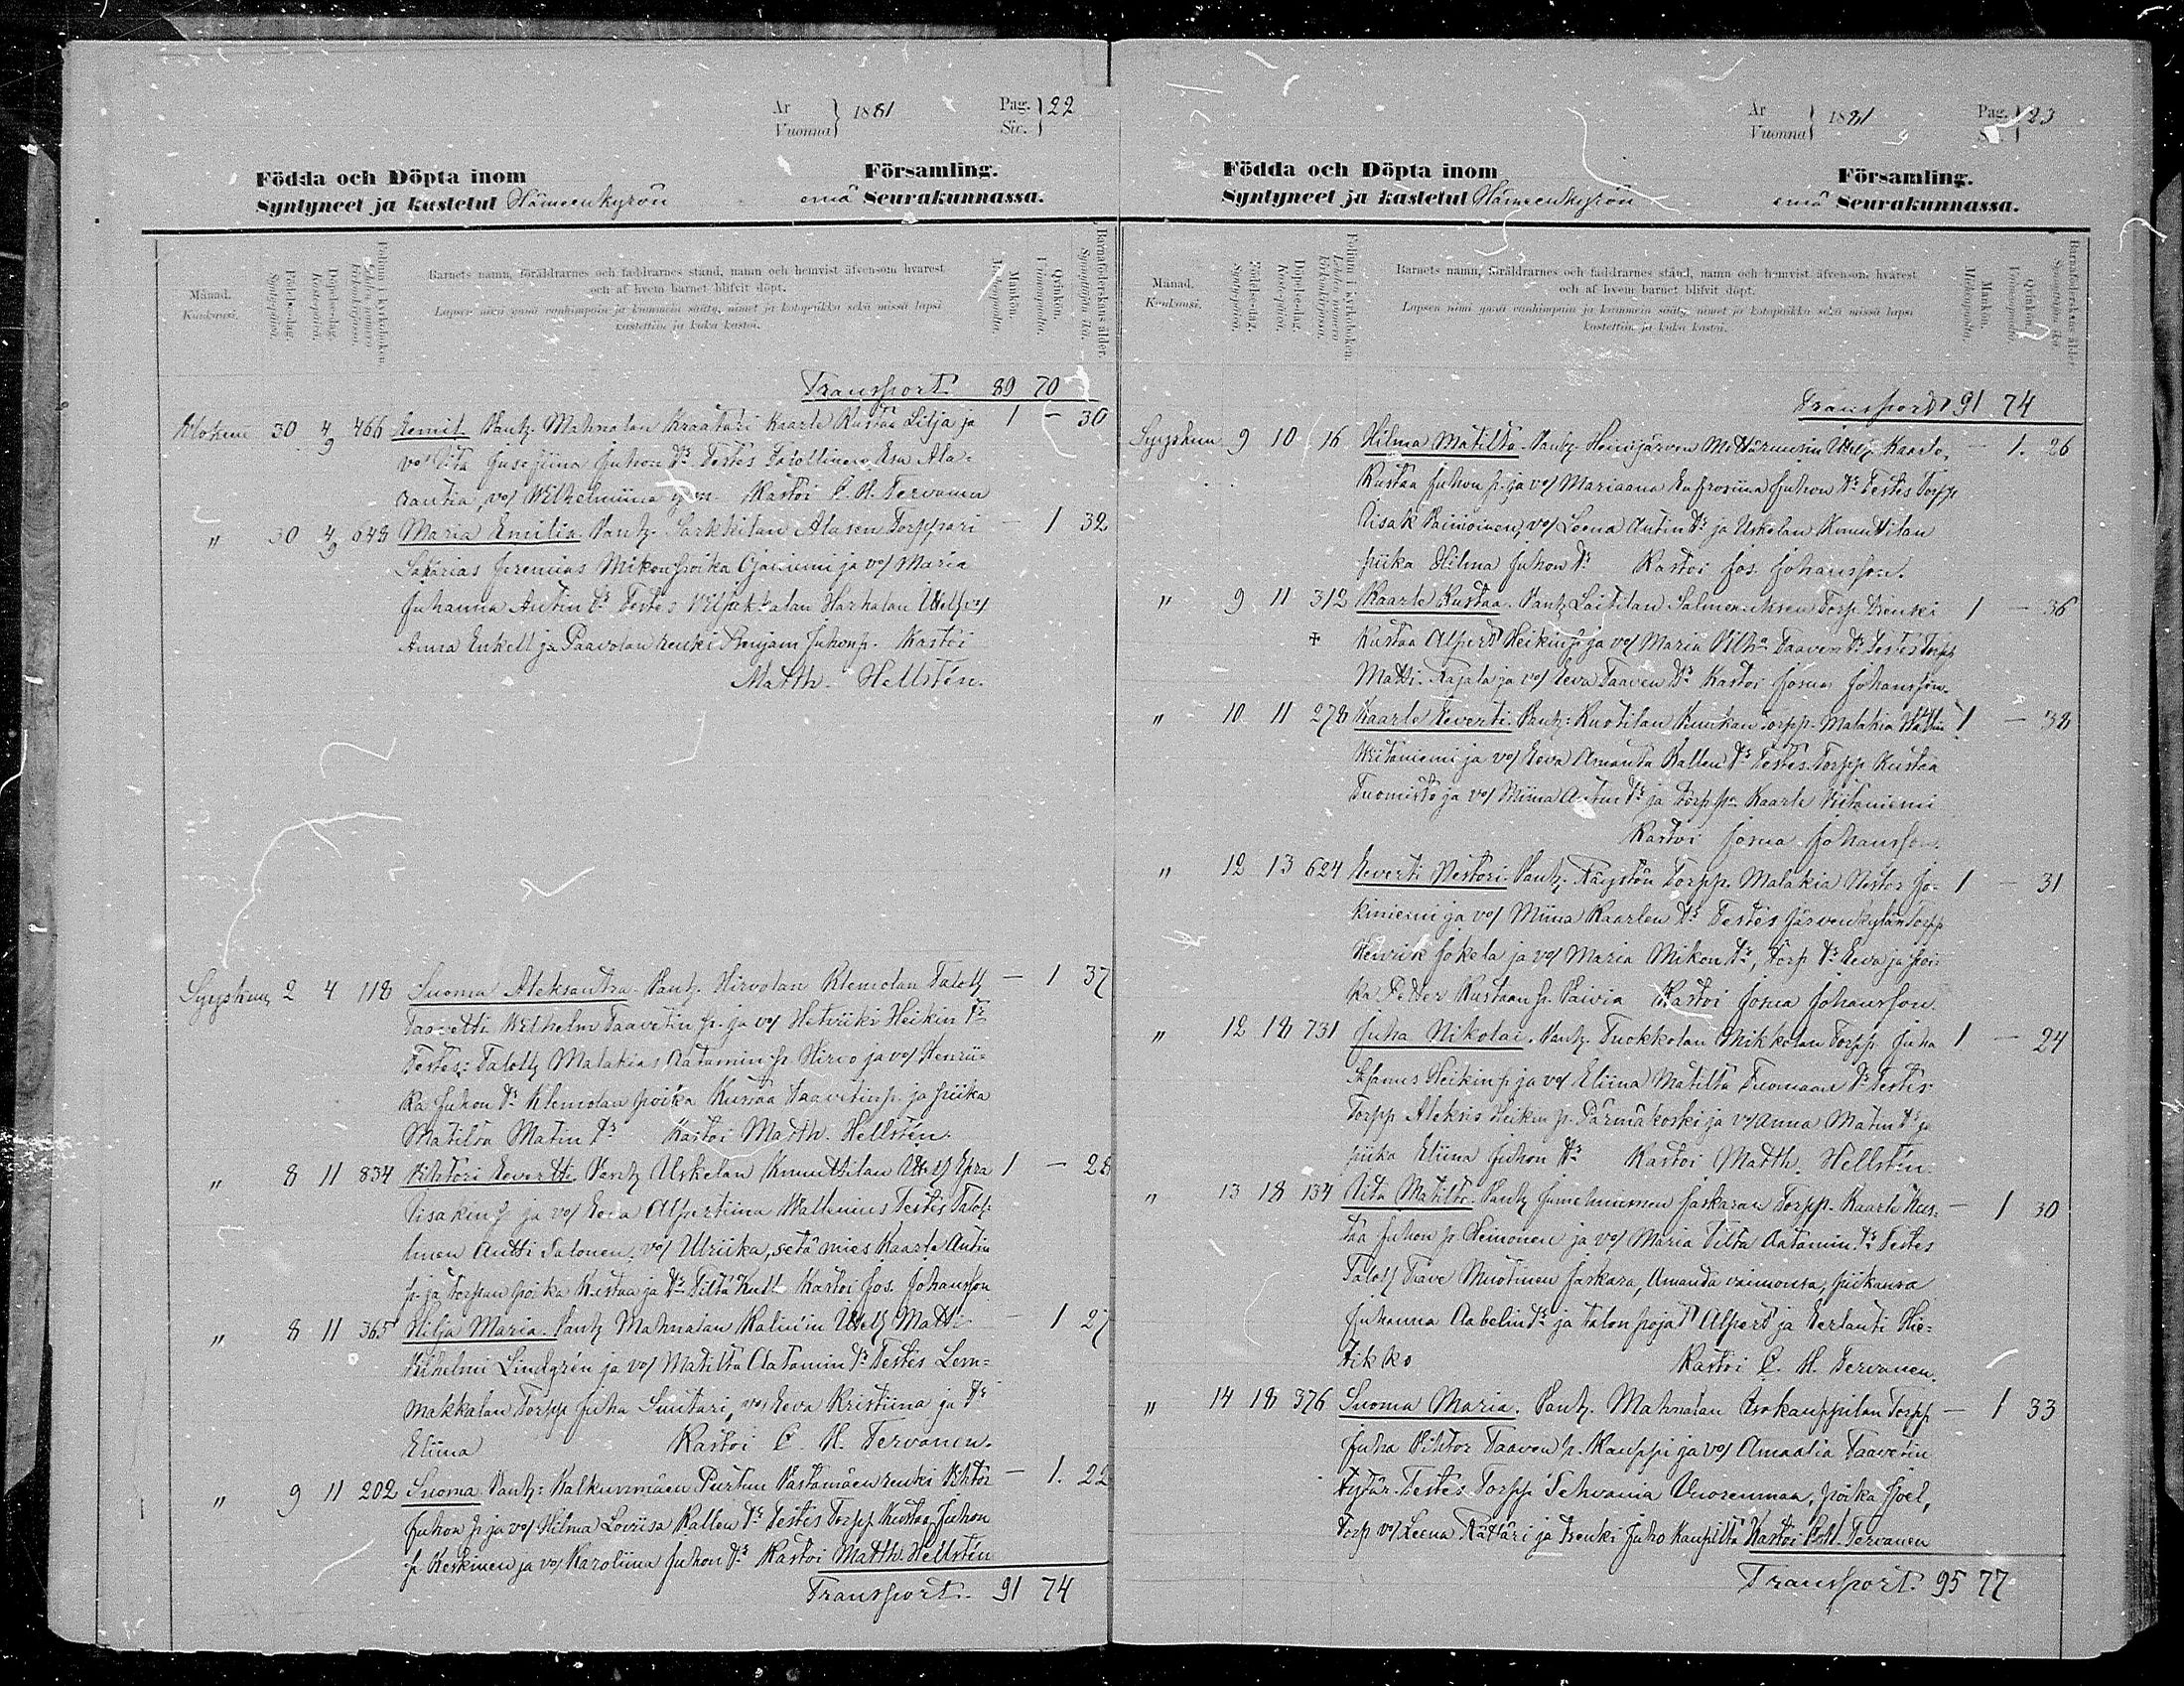 År
Vuonna } 1881
Pag.
Siv. } 22
Födda och Döpta inom
Församling.
Syntyneet ja kastetut Hämeenkyrön emä Seurakunnassa.
Månad.
Kuukausi.
Födelse-dag.
Syntymäpäivä.
Döpelse-dag.
Kastepäivä.
Barnets namn, föräldrarnes och faddrarnes stånd, namn och hemvist äfvensom hvarest
och af hvem barnet blifvit döpt.
Lapsen nimi ynnä vanhimpain ja kummein sääty, nimet ja kotopaikka sekä missä lapsi
kastettiin ja kuka kastoi.
Mankön.
Miehenpuolia.
Qvinkön.
Vaimonpuolia.
Barnaföderskans ålder.
Synnyttäjän ikä.
Transport 89 70
Elokuu 30 4/9 466 Eemil. Vanh. Mahnalan Kraatari Kaarle Kustaa Lilja ja 1 – 30
vo/ Iita Jusefiina Juhon Tr Testes Talollinen Esa Ala-
Rantia, vo/ Wilhelmiina Kastoi C. H. Tervonen
" 30 4/9 648 Maria Emilia. Vanh. Sarkkilan Alasen Torppari – 1 32
Sakarias Jeremias Mikonpoika Ojaniemi ja vo/ Maria
Juhanna Antin Tr Testes Viljakkalan Harhalan
Anna Enkell ja Paavolan renki Benjam Juhon p. Kastoi
Matth. Hellstén.
Syyskuu 2 4 118 Suoma Aleksantra. Vanh. Hirvolan Klemolan Taloll – 1 37
Taavetti Wilhelm Taavetin p. ja vo/ Hetviiki Heikin Tr
Testes: Taloll Malakias Aatamin p. Hirvo ja vo/ Henrii-
ka Juhon Tr Klemolan poika Kustaa Taavetin p. ja piika
Matilta Matin Tr Kastoi Matth. Hellstén.
" 8 11 834 Vihtori Eevertti. Vanh. Uskelan Knuuttilan Esra 1 – 28
Iisakin p. ja vo/ Eeva Alpertiina Wallenius Testes Talol-
linen Antti Salonen, vo/ Ulriika, setä mies Kaarle Antin
p. ja torpan poika Kustaa ja Tr Tilta Kastoi Jos. Johansson
" 8 11 365 Hilja Maria. Vanh. Mahnalan Kalinin Matti – 1 27
Vilhelmi Lindgrén ja vo/ Matilta Aatamin Tr Testes Lem-
makkalan Torpp Juha Suutari, vo/ Eeva Kristiina ja Tr
Eliina Kastoi C. H. Tervonen.
" 9 11 202 Suoma Vanh: Kalkunmäen Purtun Vastamäen renki Vihtor – 1. 22
Juhon p. ja vo/ Hilma Loviisa Kallen Tr Testes Torpp Kustaa Juhon
p. Keskinen ja vo/ Karoliina Juhon Tr Kastoi Matth. Hellstén
Transport. 91 74
År
Vuonna } 1881
Pag. } 23
Födda och Döpta inom
Församling.
Syntyneet ja kastetut Hämeenkyrön emä Seurakunnassa.
Månad.
Kuukausi.
Födelse-dag.
Syntymäpäivä.
Döpelse-dag.
Kastepäivä.
Barnets namn, föräldrarnes och faddrarnes stånd, namn och hemvist äfvensom hvarest
och af hvem barnet blifvit döpt.
Lapsen nimi ynnä vanhimpain ja kummein sääty, nimet ja kotopaikka sekä missä lapsi
kastettiin ja kuka kastoi.
Mankön.
Miehenpuolia.
Qvinkön.
Vaimonpuolia.
Transport 91 74
Syyskuu 9 10 16 Hilma Matilta. Vanh. Heinijärven Kaarlo – 1. 26
Kustaa Juhon p. ja vo/ Mariaana Eufrosiina Juhon Tr Testes Torpp
Iisak Vainioinen, vo/ Leena Antin Tr ja Uskelan Knuuttilan
piika Hilma Juhon Tr Kastoi Jos. Johansson.
" 9 11 312 Kaarle Kustaa. Vanh. Laitilan Torp Renki 1 – 36
+ Kustaa Alpert Heikin p. ja vo/ Maria Taaven Tr Testes Torpp
Matti Rajala ja vo/ Eeva Taaven Tr Kastoi Josua Johansson.
" 10 11 278 Kaarle Eeverti. Vanh: Kuotilan torpp. Malakia 1 – 38
Viitaniemi ja vo/ Eeva Amanta Kallen Tr Testes Torpp Kustaa
Tuomisto ja vo/ Miina Antin Tr ja torpp. Kaarle Viitaniemi
Kastoi Josua Johansson.
" 12 13 624 Eeverti Nestori. Vanh. Torpp. Malakia Nestor Jo- 1 – 31
kiniemi ja vo/ Miina Kaarlen Tr Testes Järvenkylän Torpp
Henrik Jokela ja vo/ Maria Mikon Tr, torp Tr Eeva ja poi-
ka Petter Kustaan p. Kastoi Josua Johansson.
" 12 18 731 Juha Nikolai. Vanh. Tuokkolan Mikkolan Torpp Juha 1 – 24
Stefanus Heikin p. ja vo/ Eliina Matilta Tuomaan Tr Testes
Torpp Aleksis Heikin p. Pärmäkoski ja vo/ Anna Matin Tr ja
piika Eliina Juhon Tr Kastoi Matth. Hellstén.
" 13 18 134 Iita Matilta. Vanh. Jumesniemen Jaskaran Torpp. Kaarle Kus- – 1 30
taa Juhon p. Heinonen ja vo/ Maria Tilta Aatamin Tr Testes
Taloll Taave Muotinen Jaskara, Amanda vaimonsa, piikansa
Juhanna Aabelin Tr ja talon pojat Alpert ja Eerlanti Hie-
tikko Kastoi C. H. Tervonen.
" 14 18 376 Suoma Maria. Vanh. Mahnalan Isokauppilan Torpp – 1 33
Juha Vihtor Taaven p. Kauppi ja vo/ Amaalia Taavetin
tytär. Testes Torpp Sehvania Vuorenmaa, poika Joel,
torp vo/ Leena Rättäri ja renki Juho Kauppila Kastoi C. H. Tervonen
Transport. 95 77